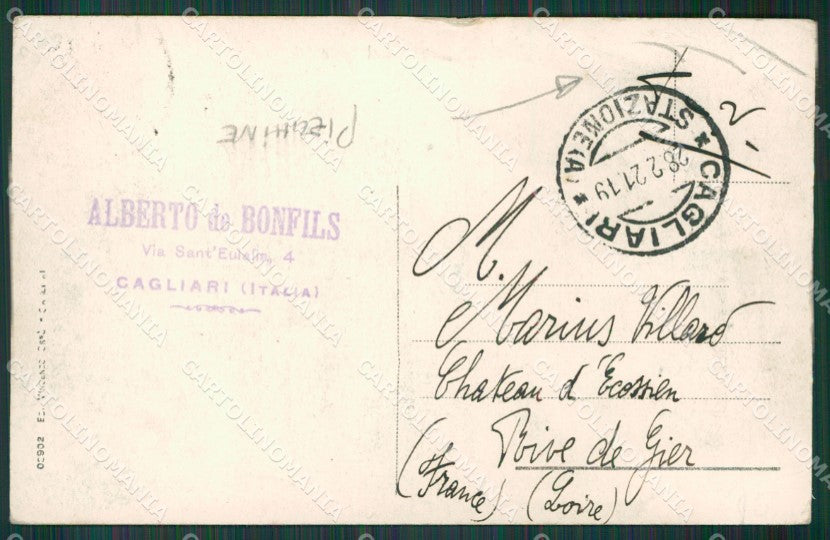 PIEGHINE
ALBERTO de BONFILS
Via Sant'Eulalia, 4
CAGLIARI (ITALIA)
CAGLIARI
STAZIONE (A)
28.2.21.19
M.
Marius Villard
Chateau d'Ecossien
Rive de Gier
(France) (Loire)
2
CARTOLINOMANIA